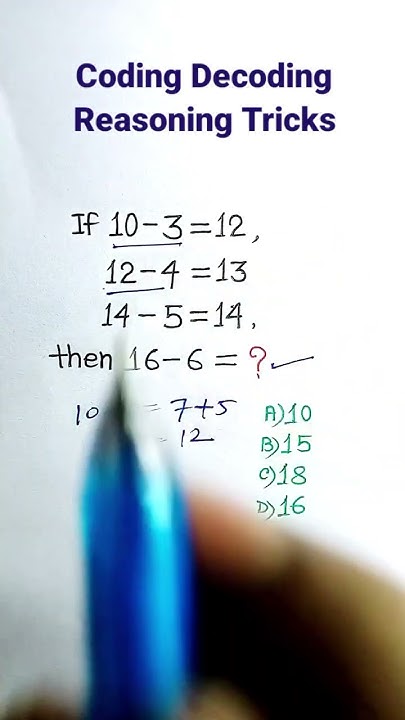 Coding Decoding
Reasoning Tricks
If 10-3=12,
12-4=13
14-5=14,
then 16-6=?
10 = 7+5
= 12
A)10
B)15
C)18
D)16